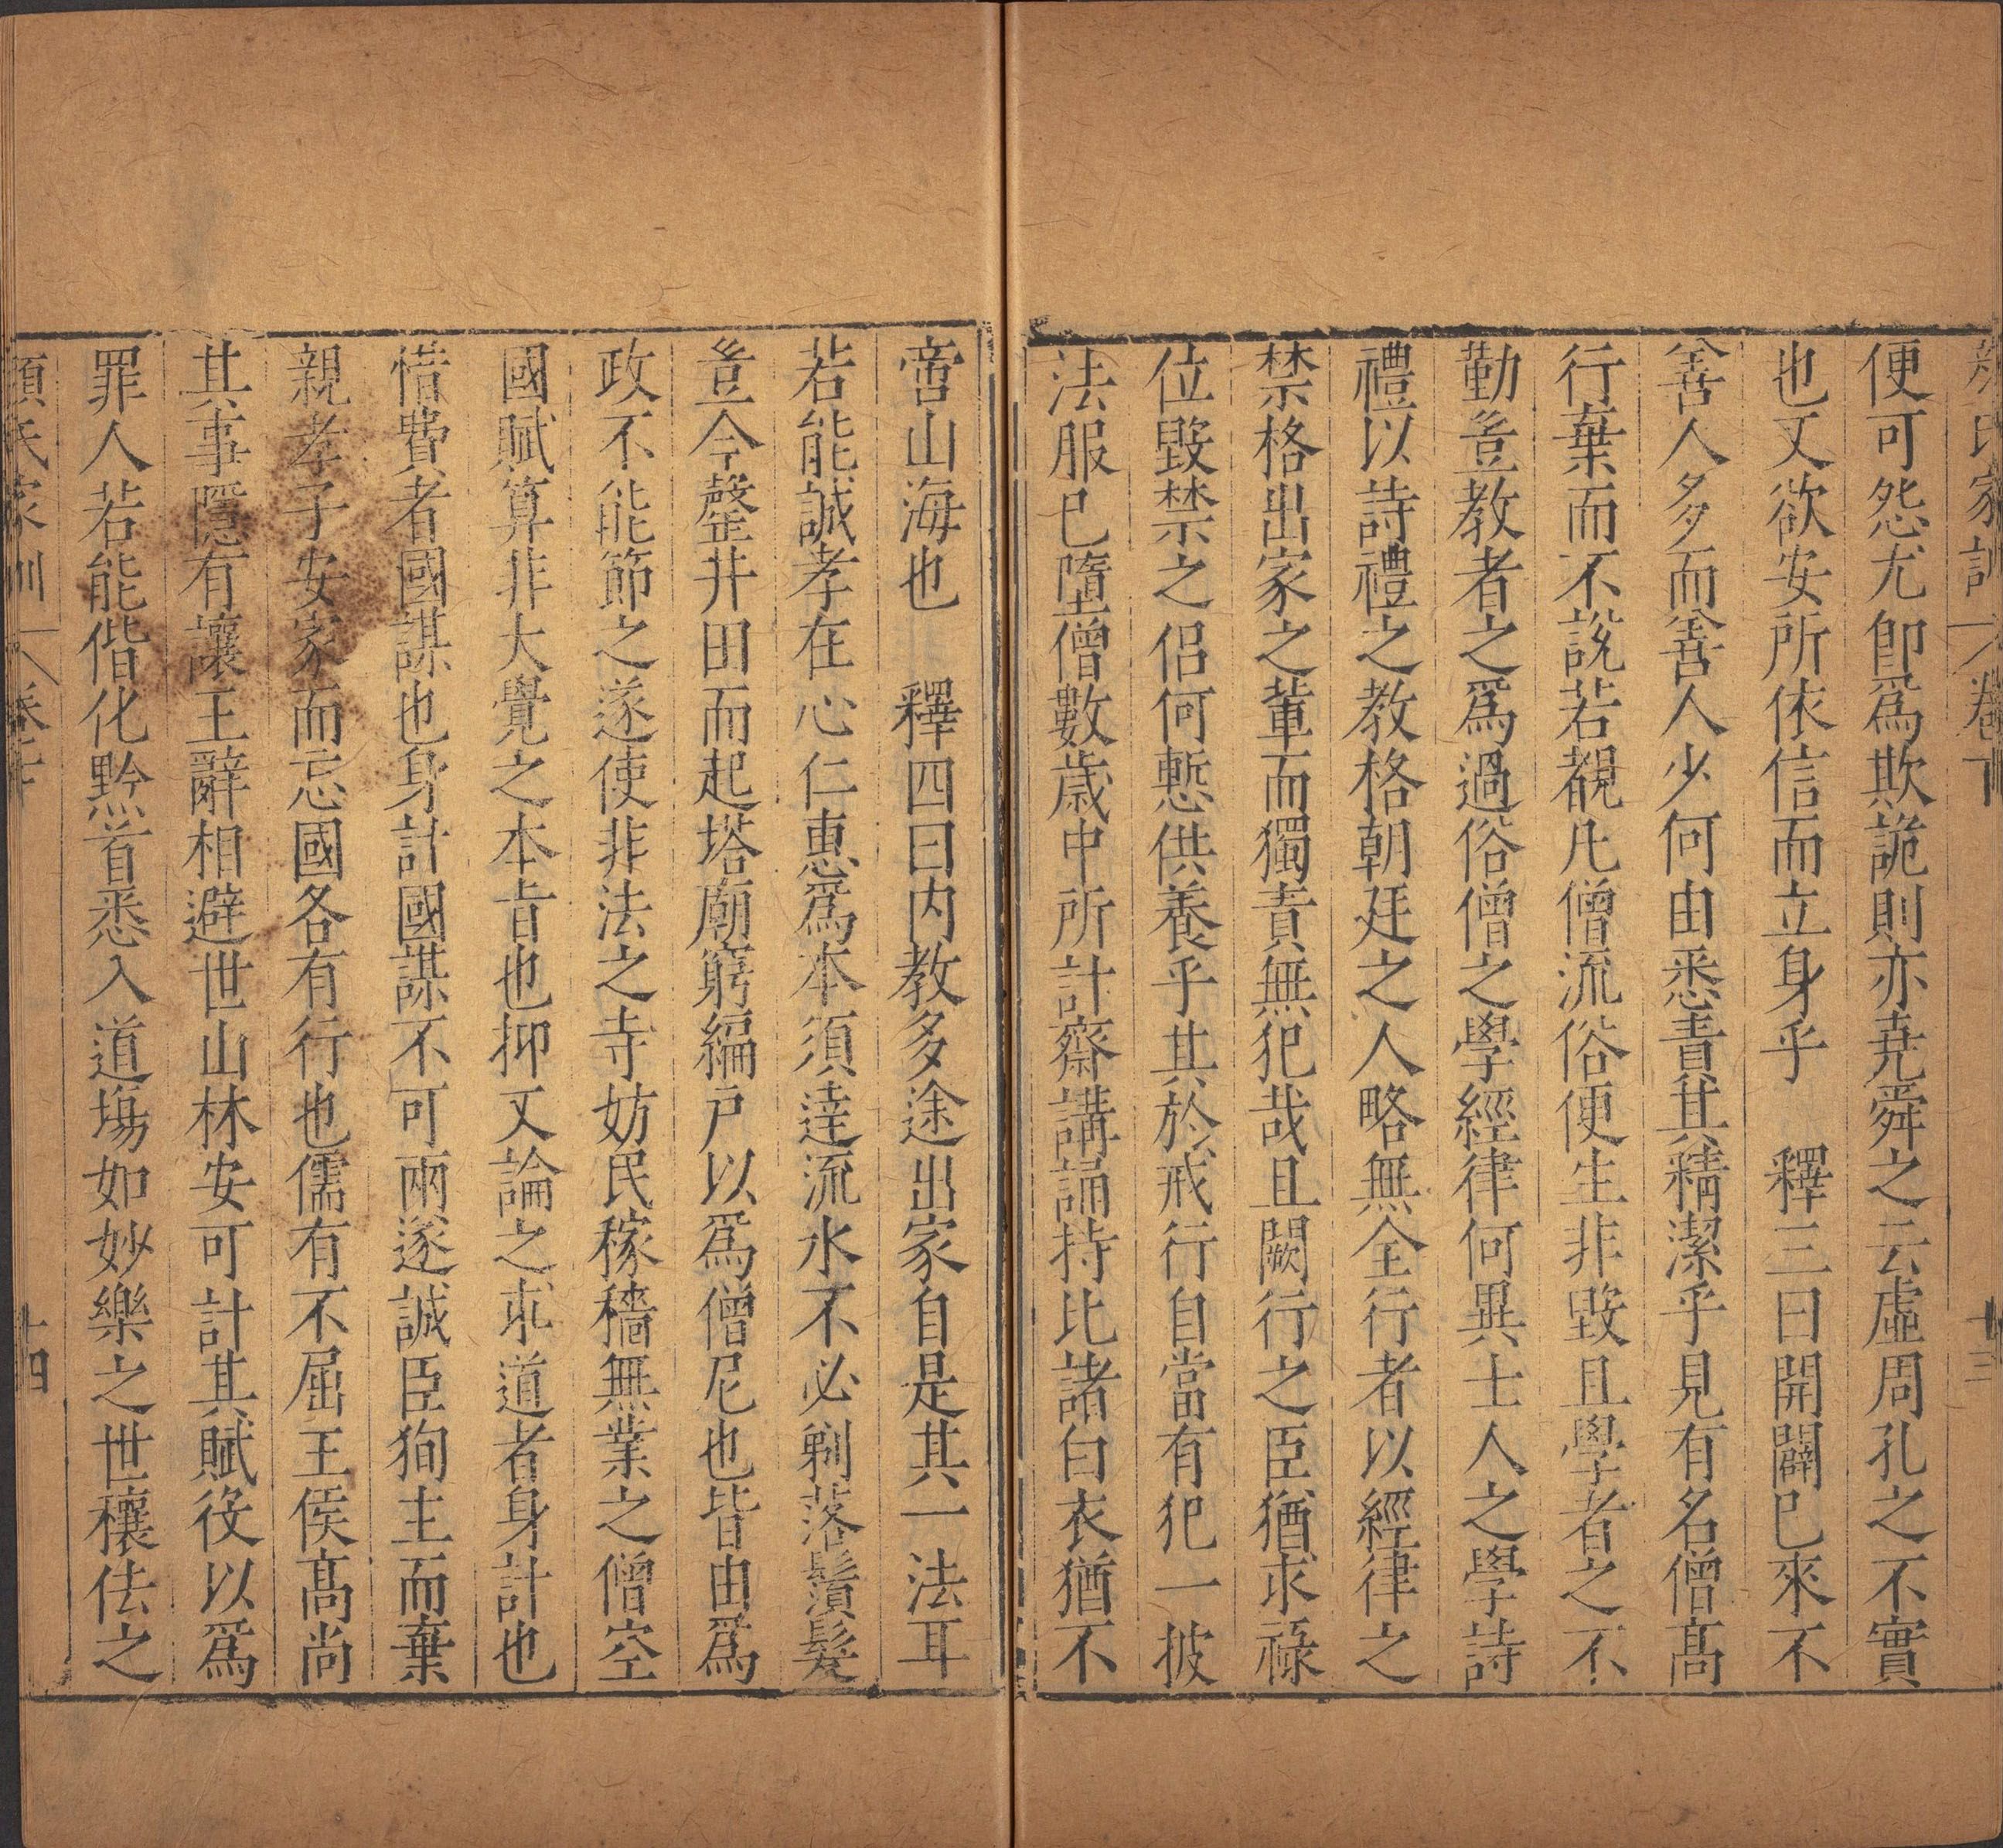 顏氏家訓 卷下 十三
便可怨尤卽爲欺詭則亦堯舜之云虛周孔之不實
也又欲安所依信而立身乎　釋三曰開闢已來不
善人多而善人少何由悉責其精潔乎見有名僧高
行棄而不說若覩凡僧流俗便生非毀且學者之不
勤豈教者之爲過俗僧之學經律何異士人之學詩
禮以詩禮之教格朝廷之人略無全行者以經律之
禁格出家之輩而獨責無犯哉且闕行之臣猶求祿
位毀禁之侣何慙供養乎其於戒行自當有犯一披
法服已墮僧數歲中所計齋講誦持比諸白衣猶不
啻山海也　釋四曰内教多途出家自是其一法耳
若能誠孝在心仁惠爲本須達流水不必剃落鬚髮
豈令罄井田而起塔廟窮編戸以爲僧尼也皆由爲
政不能節之遂使非法之寺妨民稼穡無業之僧空
國賦算非大覺之本旨也抑又論之求道者身計也
惜費者國謀也身計國謀不可兩遂誠臣狥主而棄
親孝子安家而忘國各有行也儒有不屈王侯高尚
其事隱有讓王辭相避世山林安可計其賦役以爲
罪人若能偕化黔首悉入道塲如妙樂之世穰佉之
顏氏家訓 卷下 十四